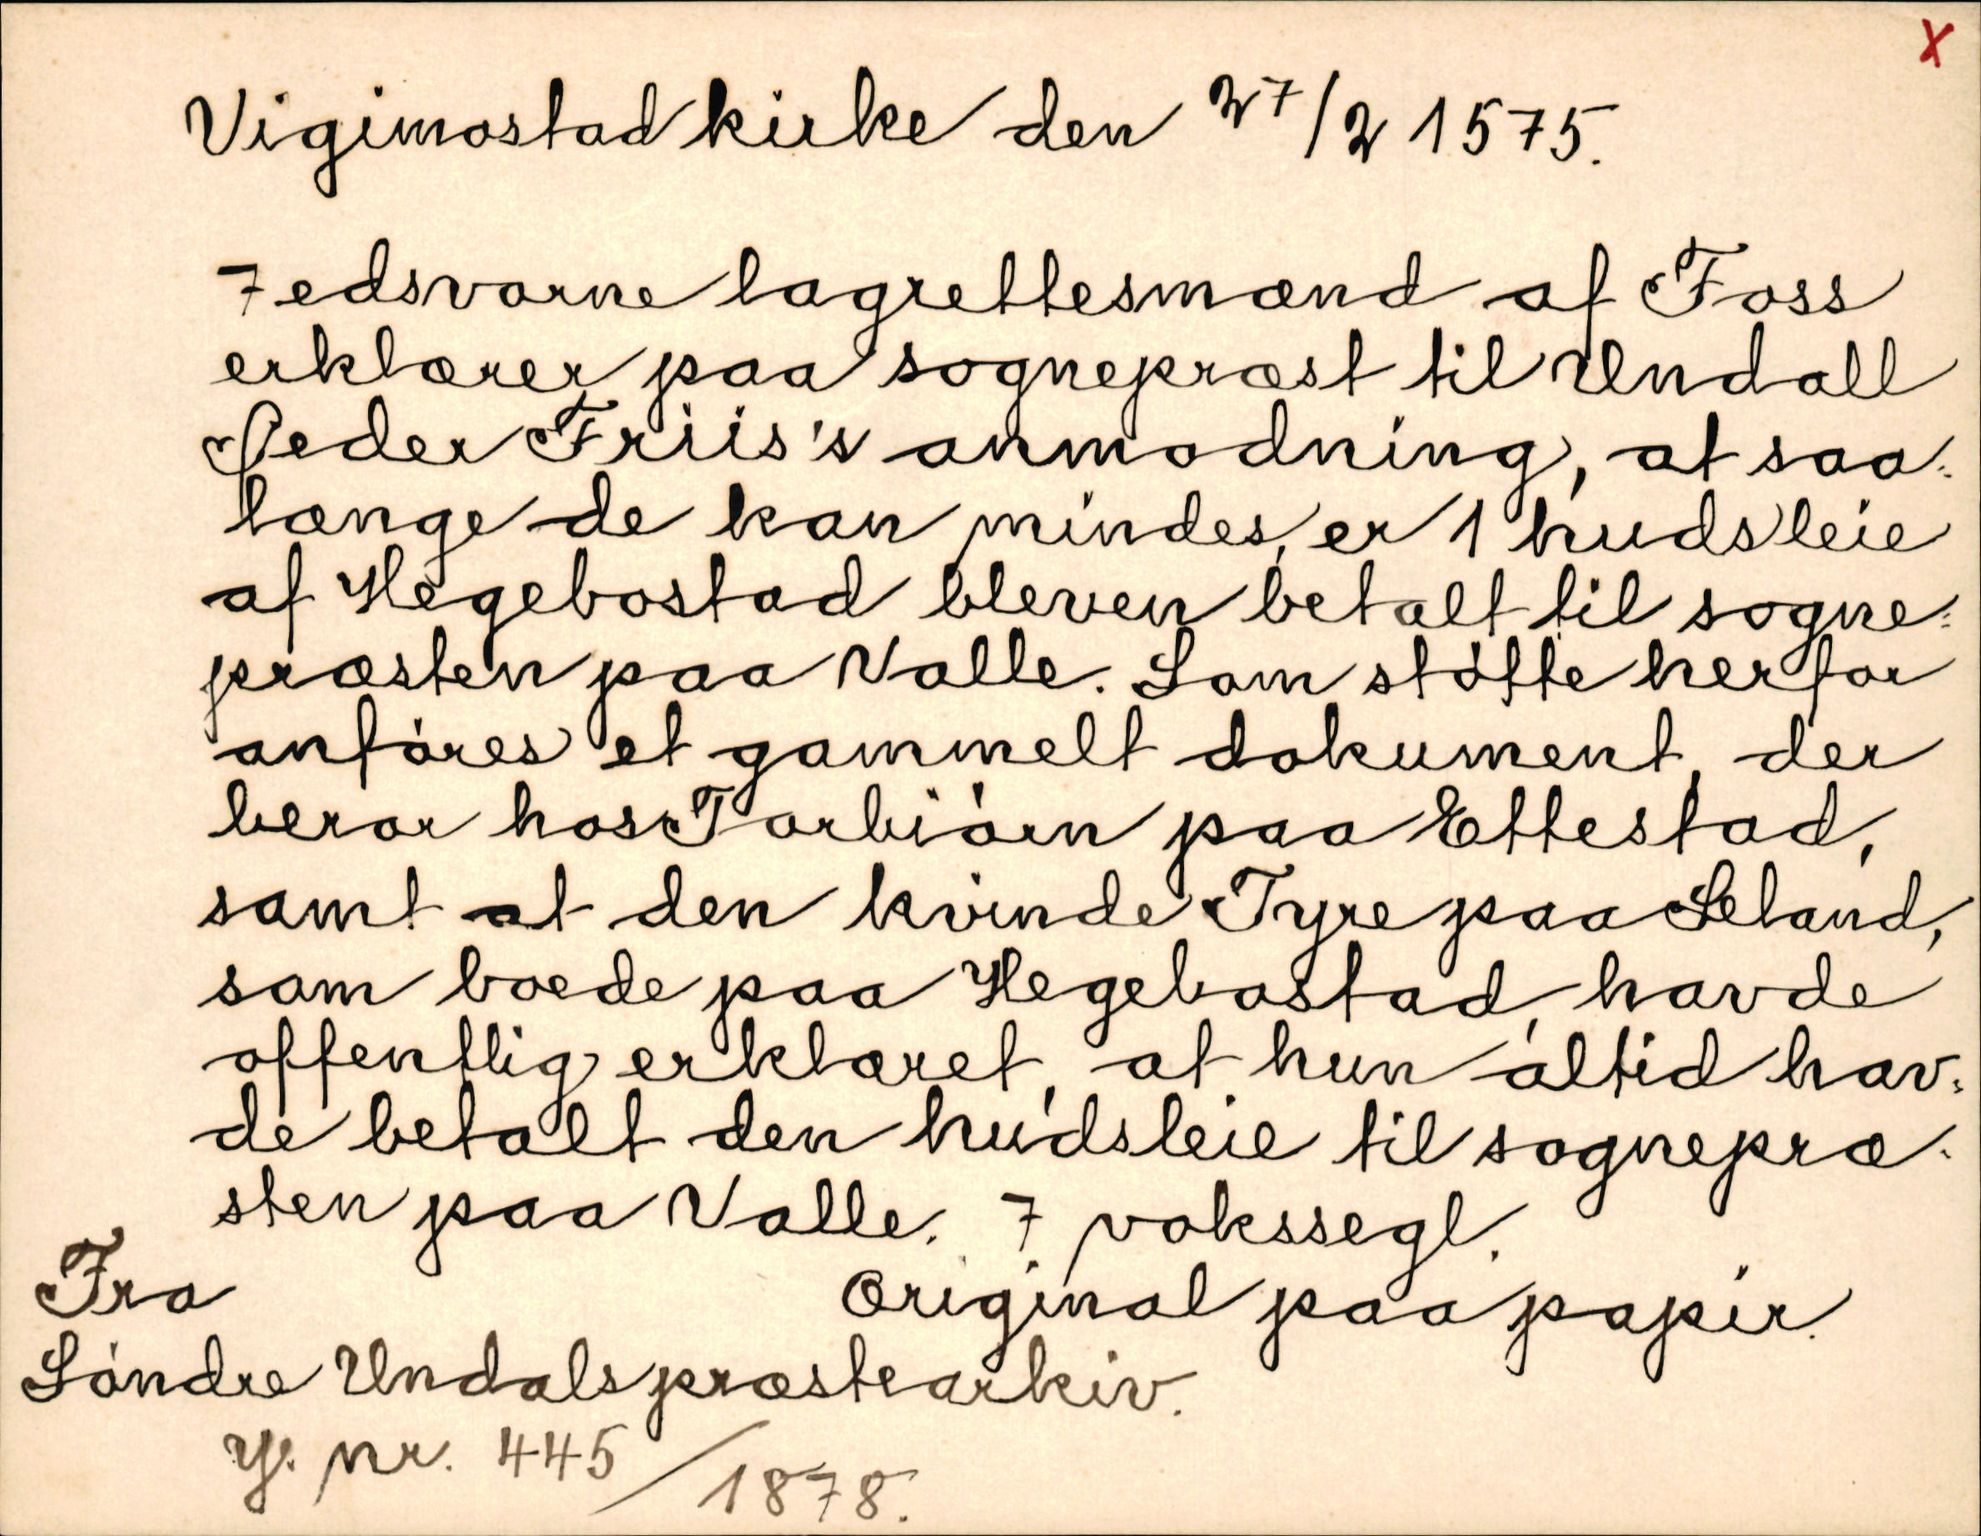 X
Vigimostad kirke den 27/2 1575.
7 edsvorne lagrettesmænd af Foss
erklærer paa sognepræst til Undall
Peder Friis's anmodning, at saa-
længe de kan mindes, er 1 hudsleie
af Hegebostad bleven betalt til sogne-
præsten paa Valle. Som støtte herfor
anføres et gammelt dokument, der
beror hos Torbiörn paa Ettestad,
samt at den kvinde Tyre paa Leland,
som boede paa Hegebostad, havde
offentlig erklæret, at hun altid hav-
de betalt den hudsleie til sognepræ-
sten paa Valle. 7 vokssegl.
Original paa papir.
Fra
Söndre Undals præstearkiv.
J. nr. 445/1878.